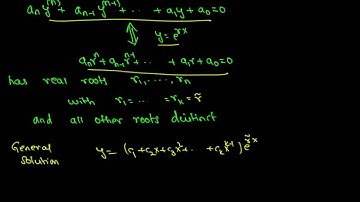 aₙy⁽ⁿ⁾ + aₙ₋₁y⁽ⁿ⁻¹⁾ + ... + a₁y + a₀ = 0
y = e^{rx}
aₙrⁿ + aₙ₋₁rⁿ⁻¹ + ... + a₁r + a₀ = 0
has real roots r₁, ..., rₙ
with r₁ = ... = rₖ = r̃
and all other roots distinct
General y = (c₁ + c₂x + c₃x² + ... + cₖx^{k-1}) e^{r̃x}
Solution